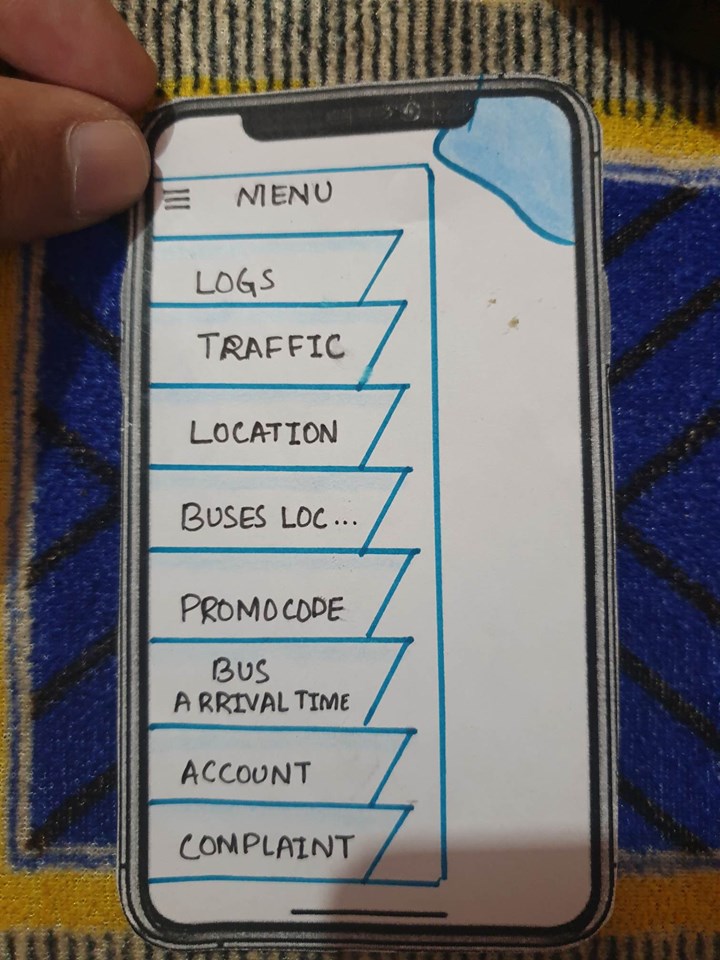 MENU
LOGS
TRAFFIC
LOCATION
BUSES LOC...
PROMOCODE
BUS
ARRIVAL TIME
ACCOUNT
COMPLAINT